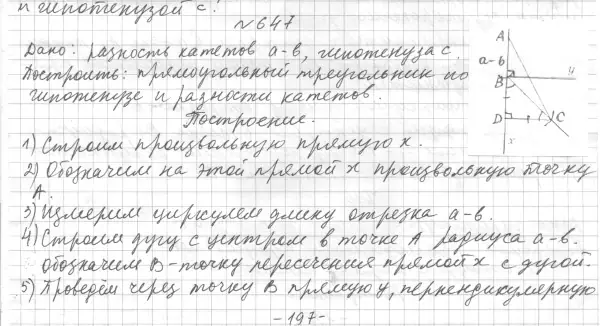 и гипотенузой с!
№647
Дано: разность катетов a-в, гипотенуза с.
Построить: прямоугольный треугольник по
гипотенузе и разности катетов.
Построение.
1) Строим произвольную прямую x.
2) Обозначим на этой прямой x произвольную точку
А.
3) Измерим циркулем длину отрезка a-в.
4) Строим дугу с центром в точке А радиуса a-в.
Обозначим В-точку пересечения прямой x с дугой.
5) Проведём через точку В прямую y, перпендикулярную
-197-
A
a-в
B
y
D
C
x